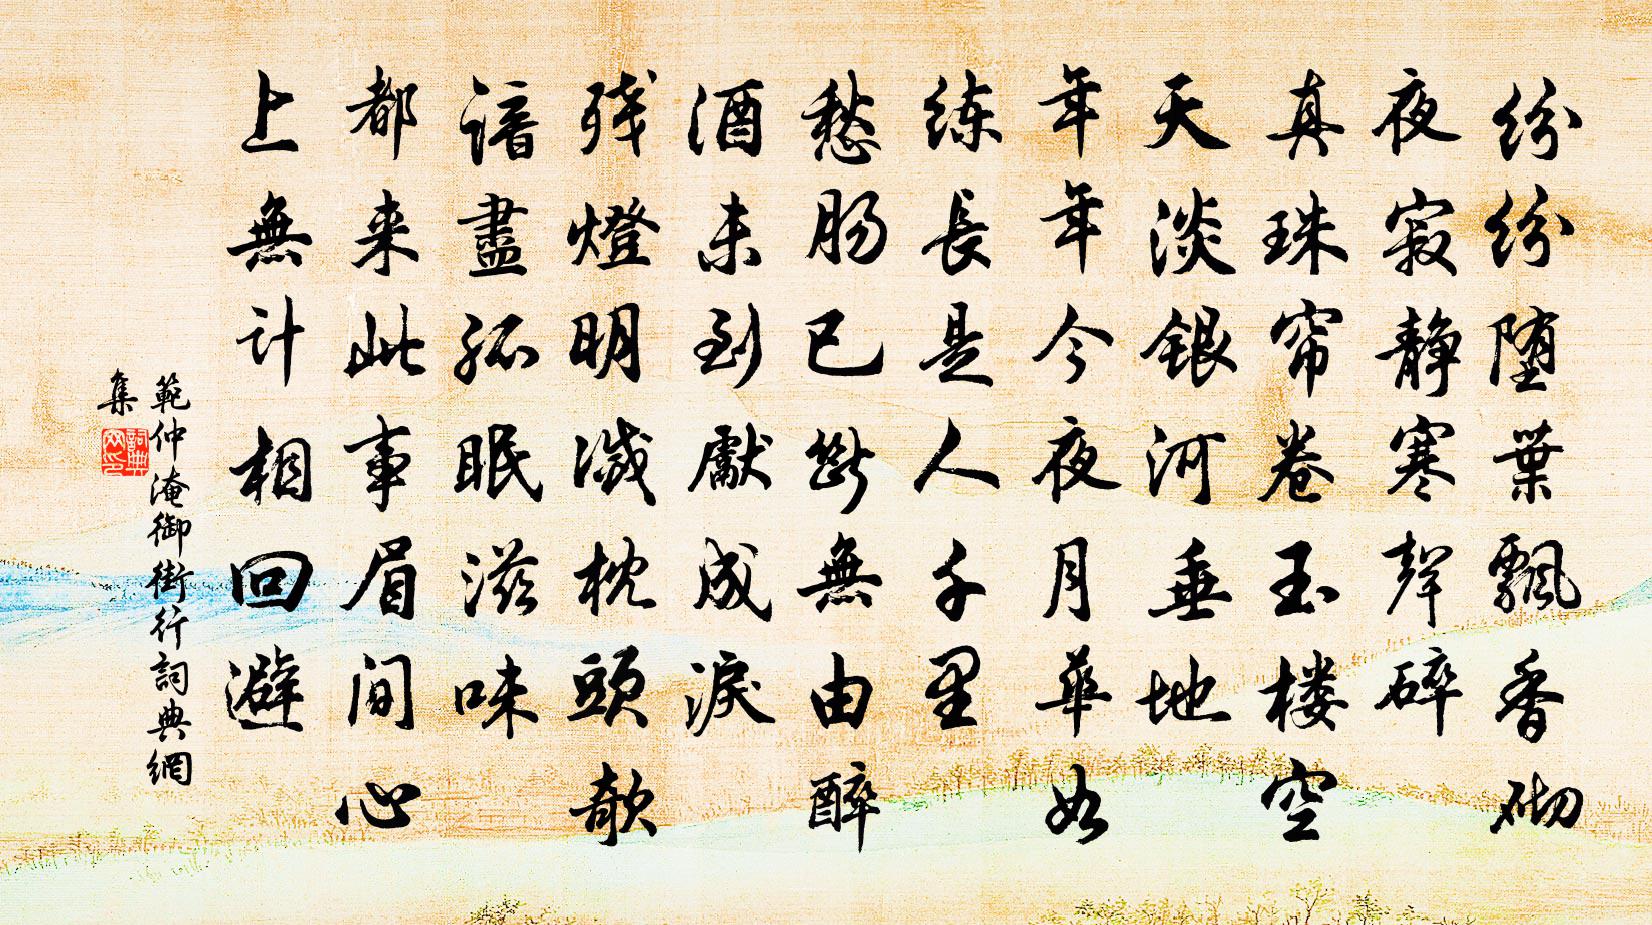 纷纷堕葉飄香砌
夜寂静寒聲碎
真珠帘卷玉楼空
天淡银河垂地
年年今夜月華如
练長是人千里
愁肠已断無由醉
酒未到獻成淚
残燈明滅枕頭欹
谙盡孤眠滋味
都来此事眉间心
上無計相回避
範仲淹御街行詞典網
集
詞典
网印